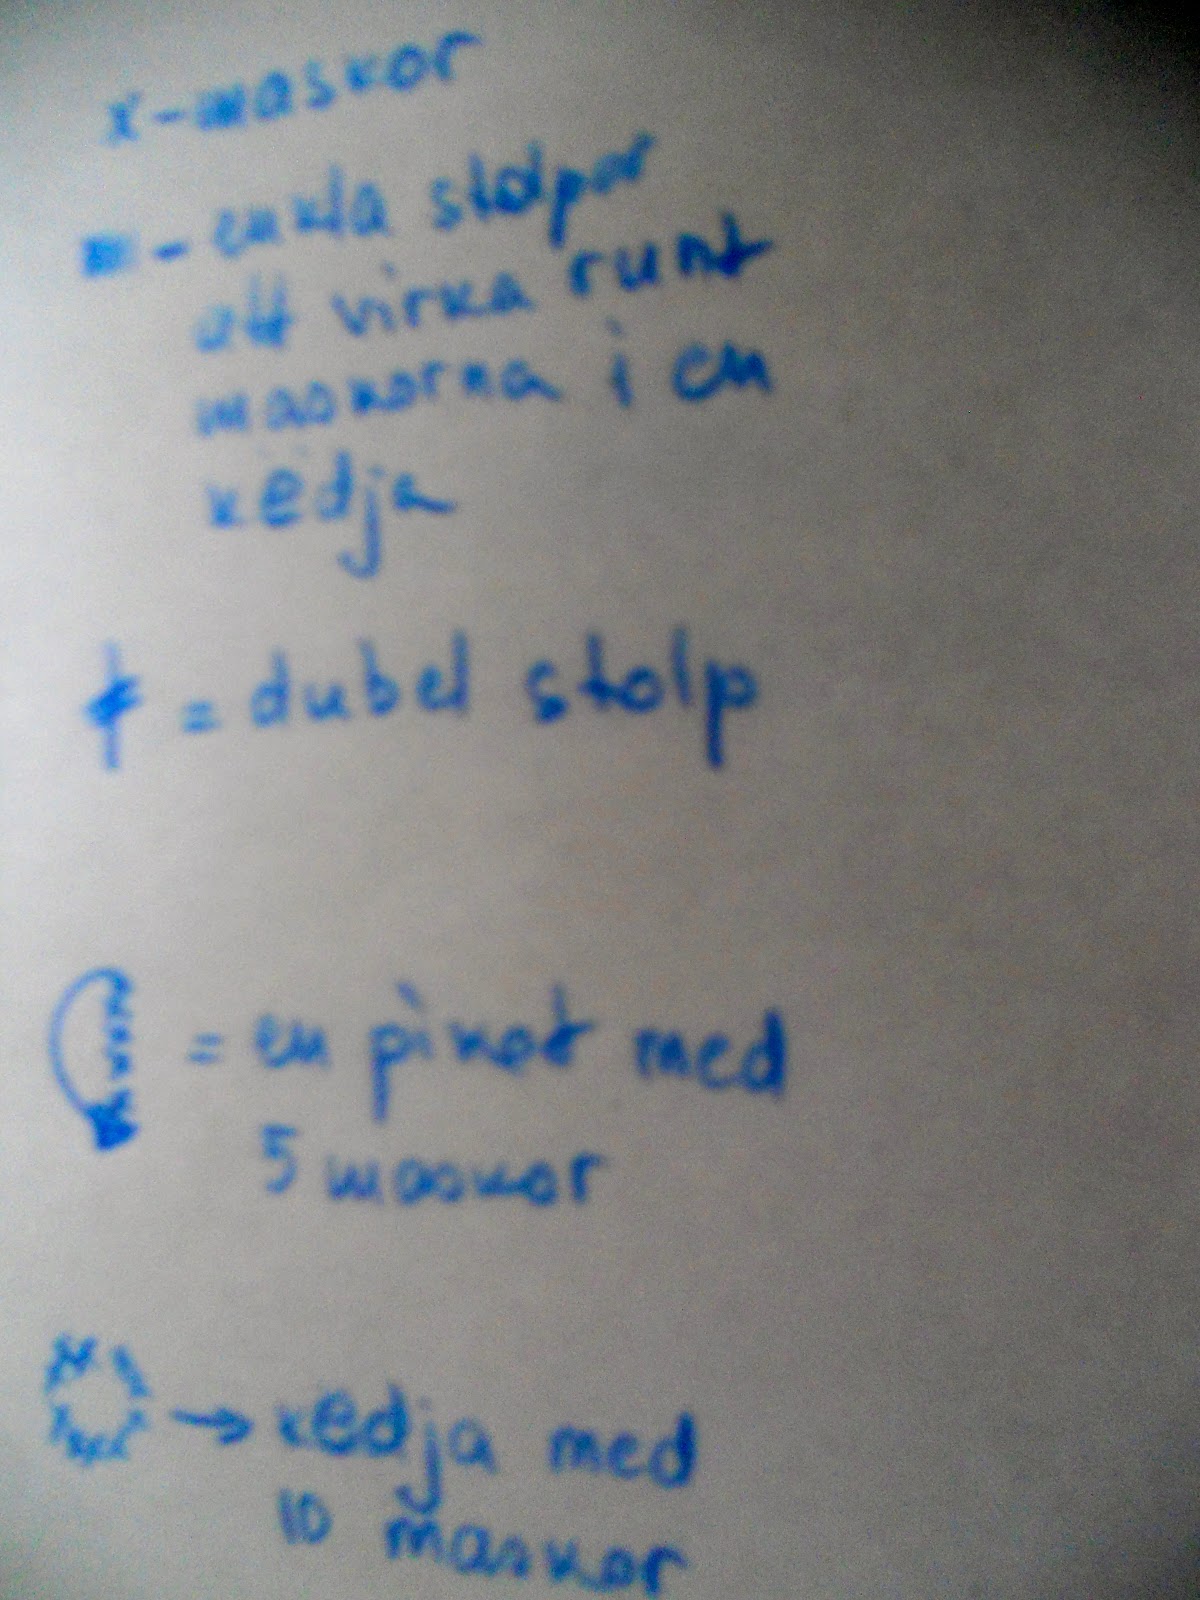 x-maskor
- enkla stolpar
att virka runt
maskorna i en
kedja
= dubel stolp
= en pikot med
5 maskor
→ kedja med
10 maskor